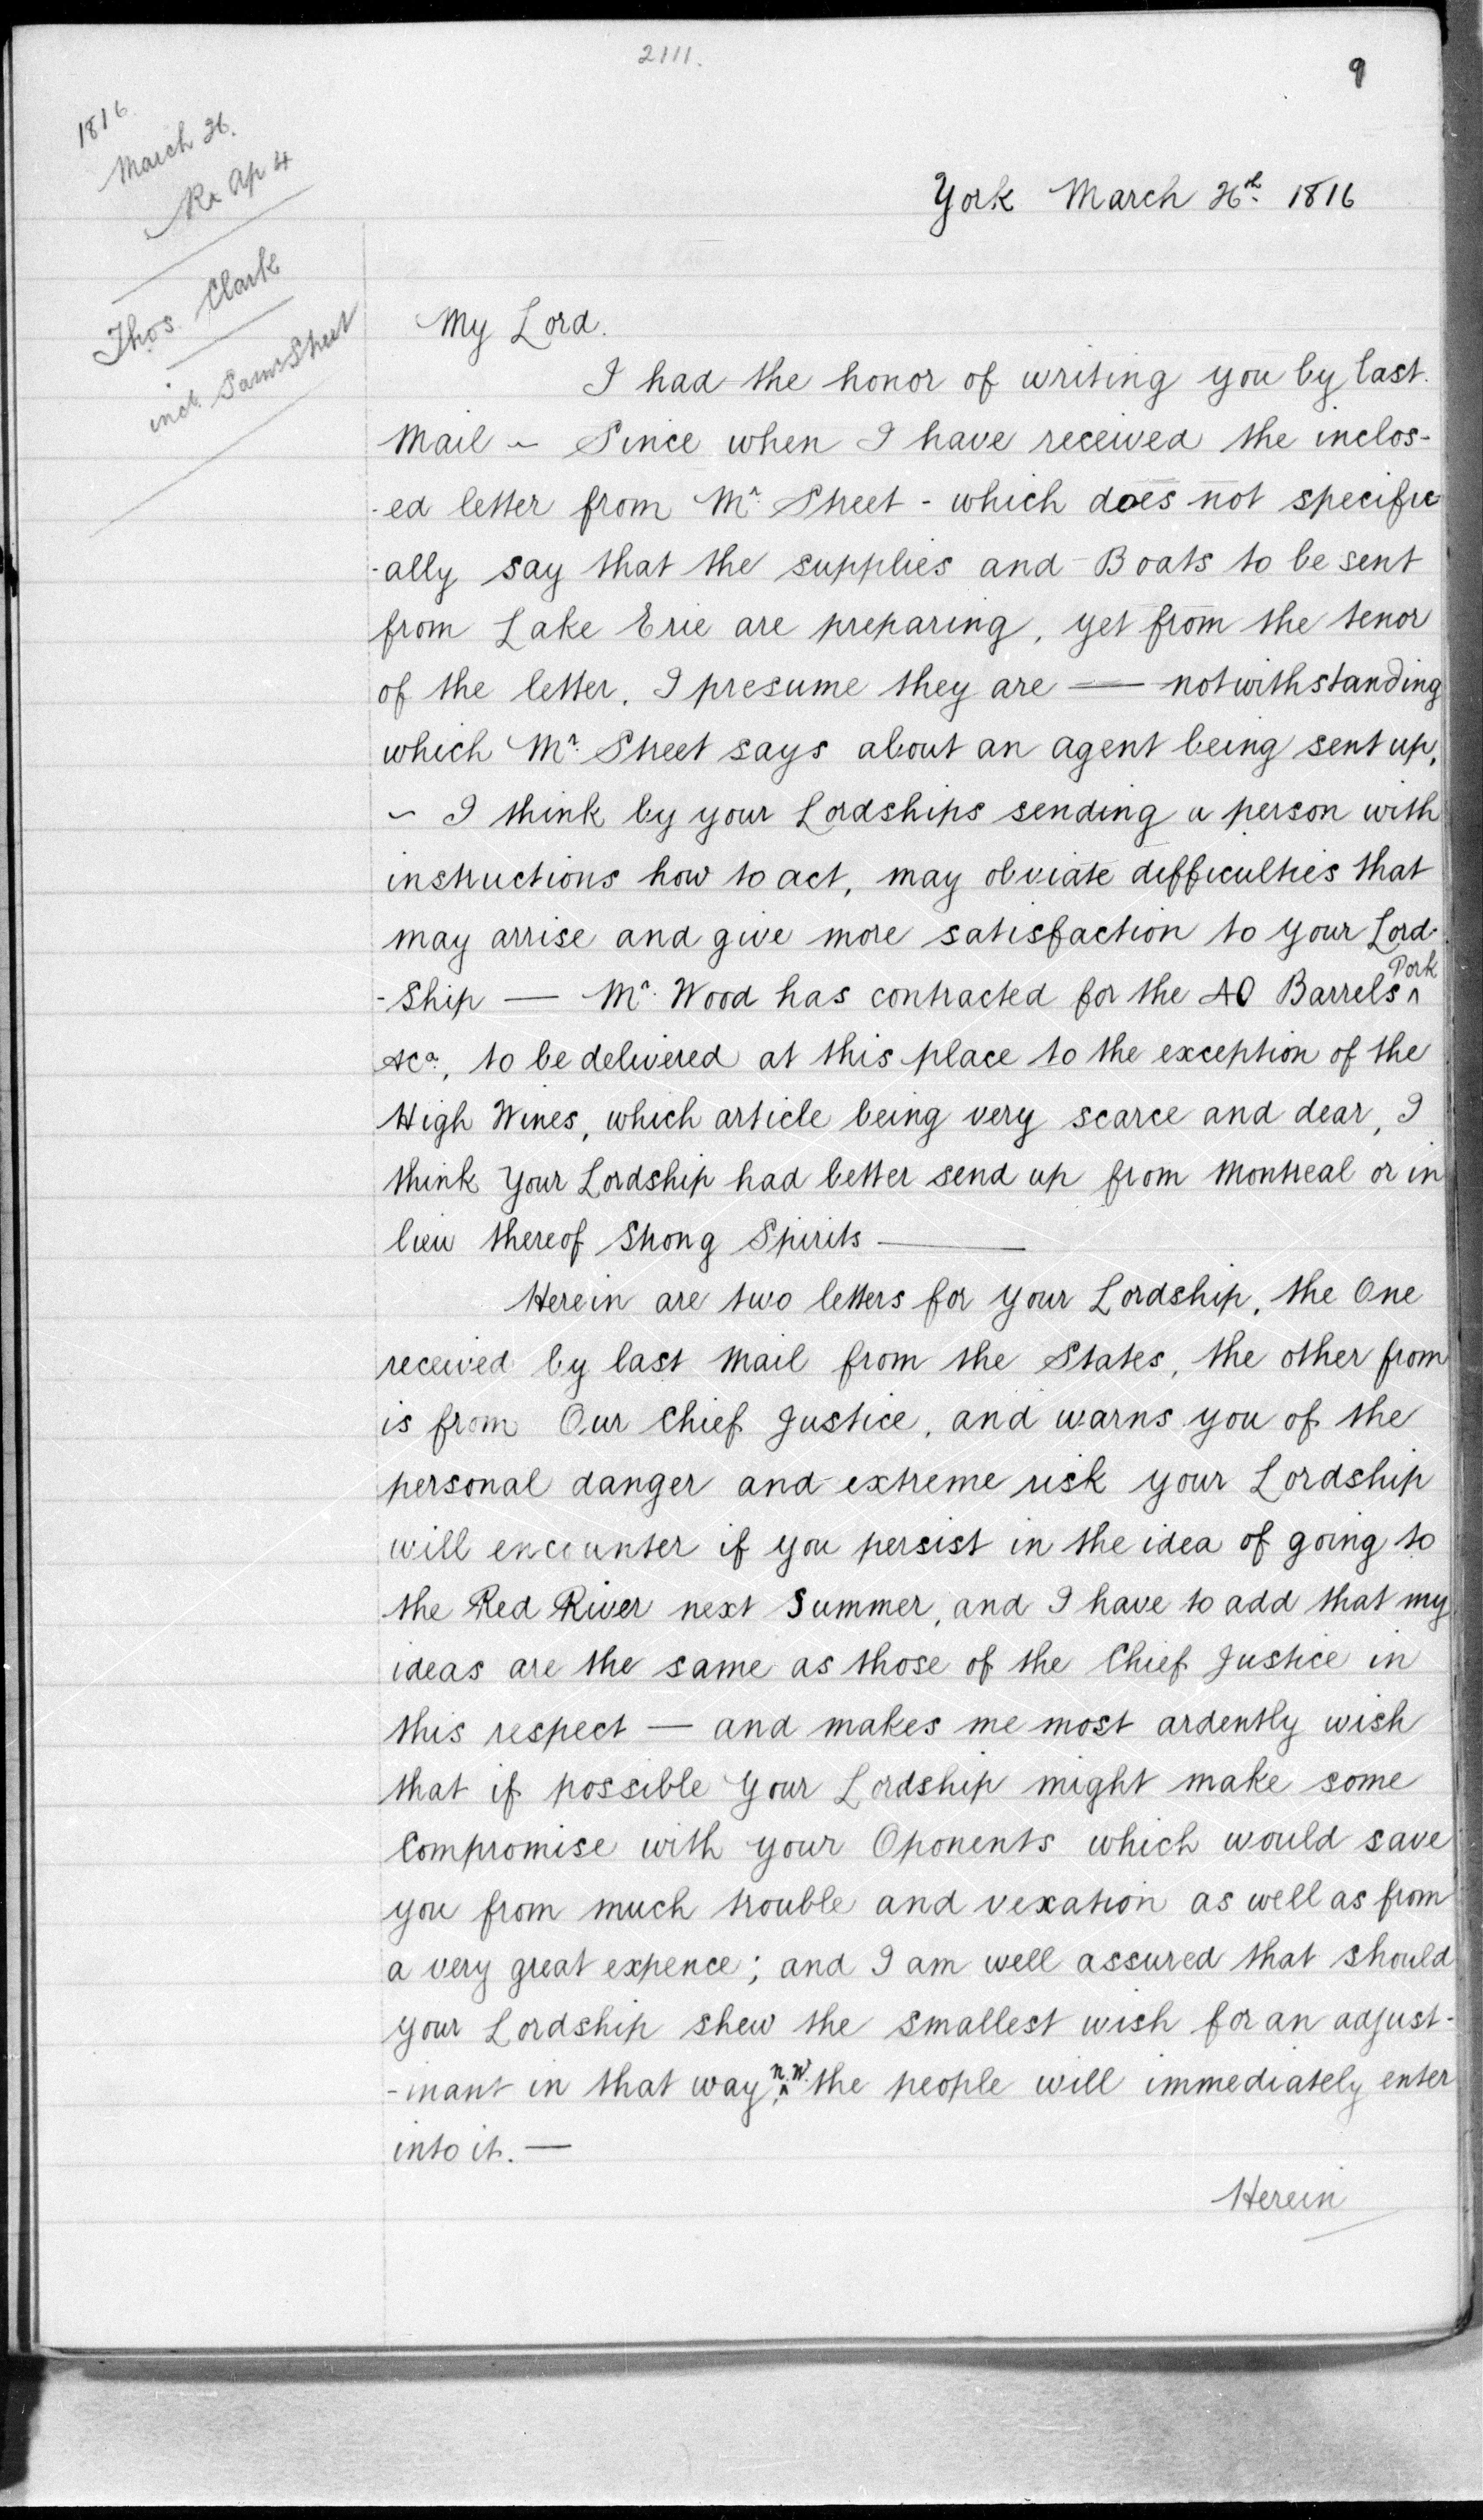 2111.
9
1816.
March 26.
Rx Ap 4
Thos. Clark
incl. Saml Street
York March 26th 1816
My Lord.
I had the honor of writing you by last
Mail ~ Since when I have received the inclos-
-ed letter from Mr. Street - which does not specific
-ally say that the supplies and Boats to be sent
from Lake Erie are preparing, yet from the tenor
of the letter, I presume they are — notwithstanding
which Mr. Street says about an agent being sent up,
~ I think by your Lordships sending a person with
instructions how to act, may obviate difficulties that
may arrise and give more satisfaction to your Lord-
-Ship — Mr. Wood has contracted for the 40 Barrels ^ Pork
&ca, to be delivered at this place to the exception of the
High Wines, which article being very scarce and dear, I
think Your Lordship had better send up from Montreal or in
lieu thereof Strong Spirits —
Herein are two letters for your Lordship, the One
received by last Mail from the States, the other from
is from Our Chief Justice, and warns you of the
personal danger and extreme risk your Lordship
will encounter if you persist in the idea of going to
the Red River next Summer, and I have to add that my
ideas are the same as those of the Chief Justice in
this respect — and makes me most ardently wish
that if possible Your Lordship might make some
Compromise with your Oponents which would save
you from much trouble and vexation as well as from
a very great expence; and I am well assured that should
your Lordship shew the smallest wish for an adjust-
-mant in that way, ^ N.W. the people will immediately enter
into it. —
Herein